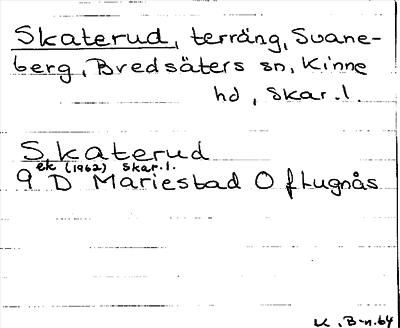 Skaterud, terräng, Svane-
berg, Bredsäters sn, Kinne
hd, Skar.l.
Skaterud
ek (1962) Skar.l.
9 D Mariestad O f Lugnås
K. B-n. 64